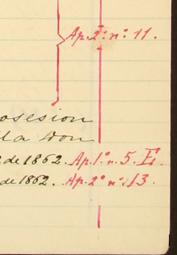 Ap. 2º nº 11.
osesion
la Don
de 1862. Ap. 1º n. 5. E.
de 1862. Ap. 2º nº 13.